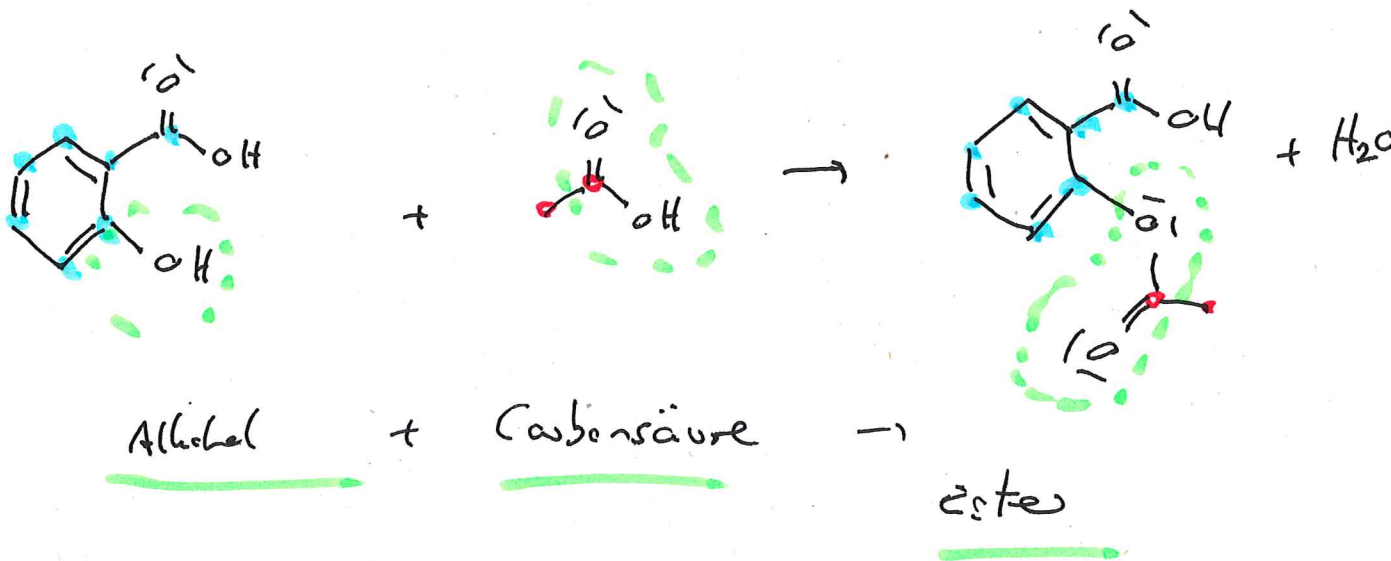 |O| |O| |O|
OH + OH → OH + H₂O
OH OI
IO
Alkohol + Carbonsäure →
Ester